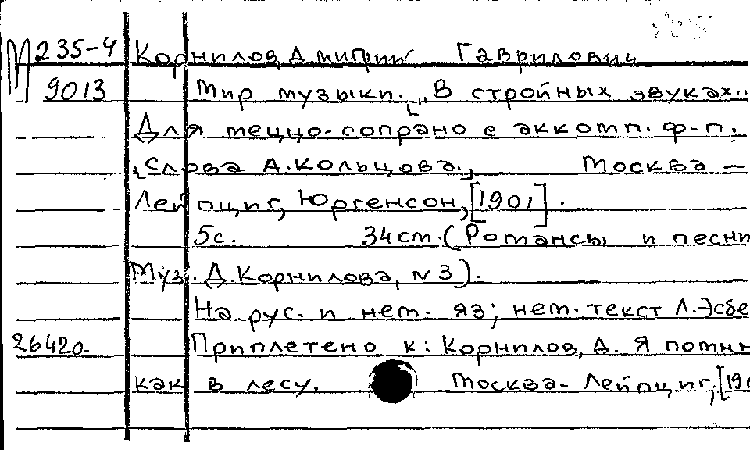 М 235-4 Корнилов, Дмитрий Гаврилович
9013 Мир музыки. „В стройных звуках..
Для меццо-сопрано с аккомп. ф-п.
Слова А. Кольцова. Москва —
Лейпциг, Юргенсон, [1901].
5с. 34см. (Романсы и песни
Муз. Д. Корнилова, №3).
На рус. и нем. яз; нем. текст Л. Эсбе
26420. Приплетено к: Корнилов, Д. Я помню
как в лесу. Москва-Лейпциг, [190